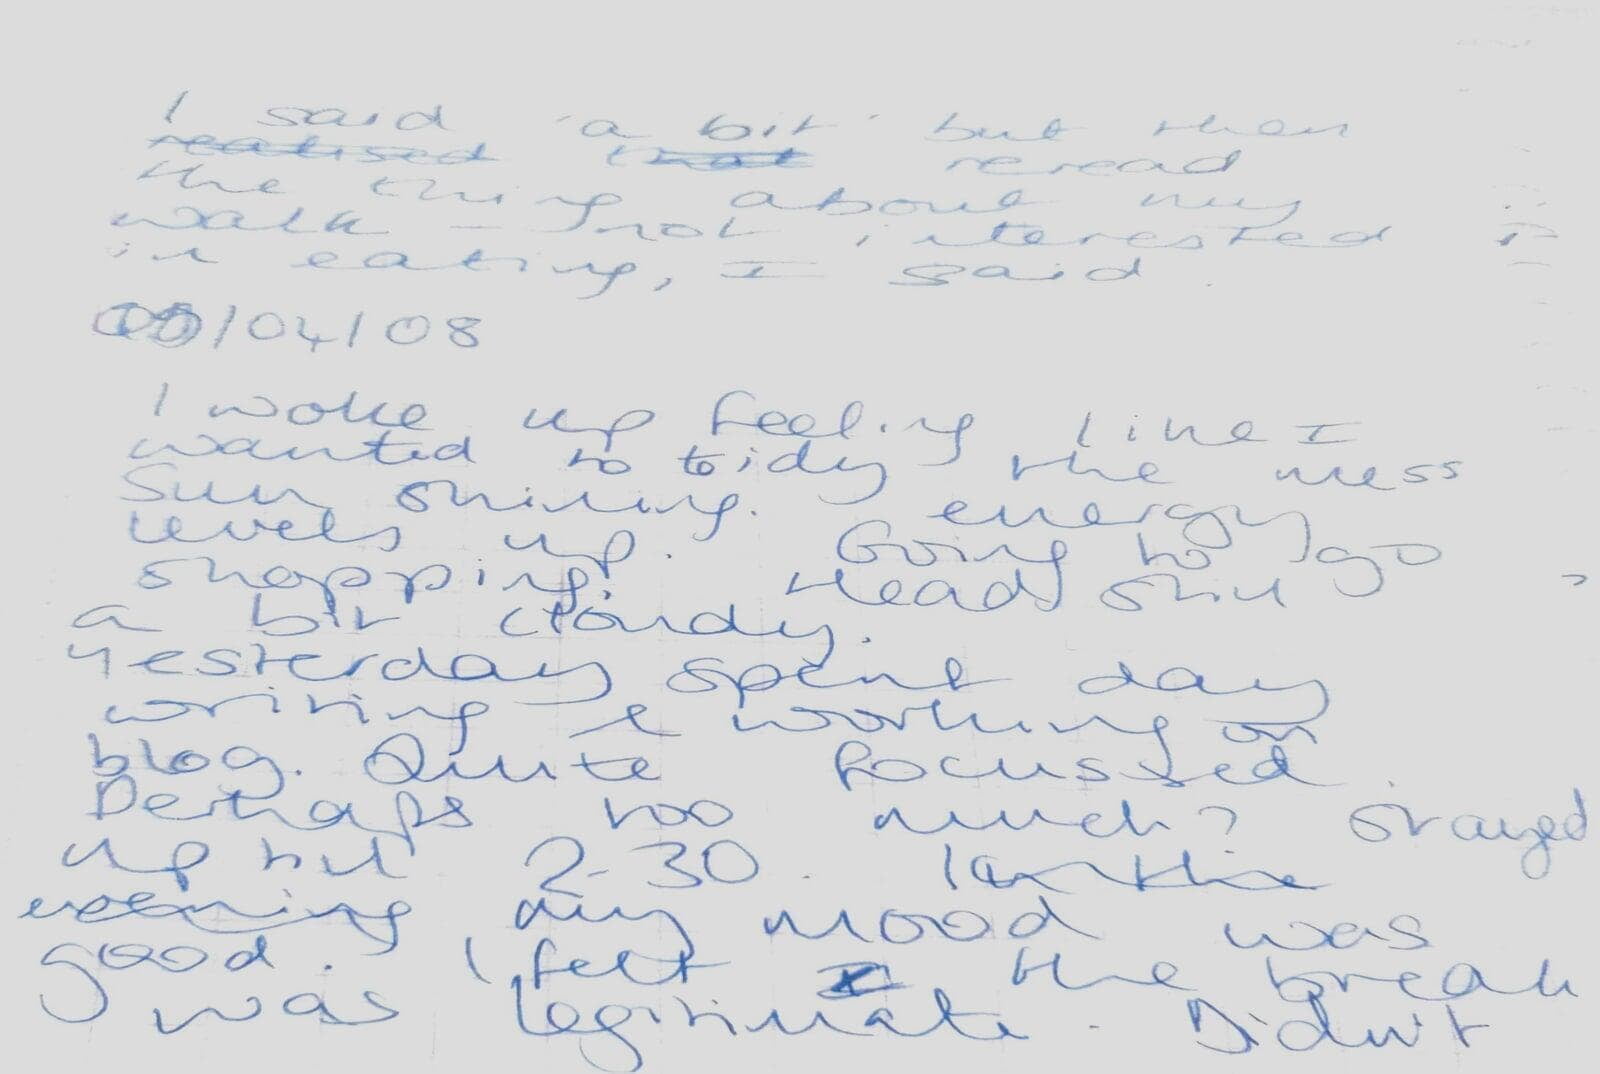 I said 'a bit' but then
realised that reread
the thing about my
walk - not interested
in eating, I said.
/04/08
I woke up feeling like I
wanted to tidy the mess
Sun shining. energy
levels up. Going to go
shopping. Head still
a bit cloudy.
Yesterday spent day
writing & working on
blog. Quite focussed.
Perhaps too much? Stayed
up till 2-30. In the
evening my mood was
good. I felt the break
was legitimate. Didn't